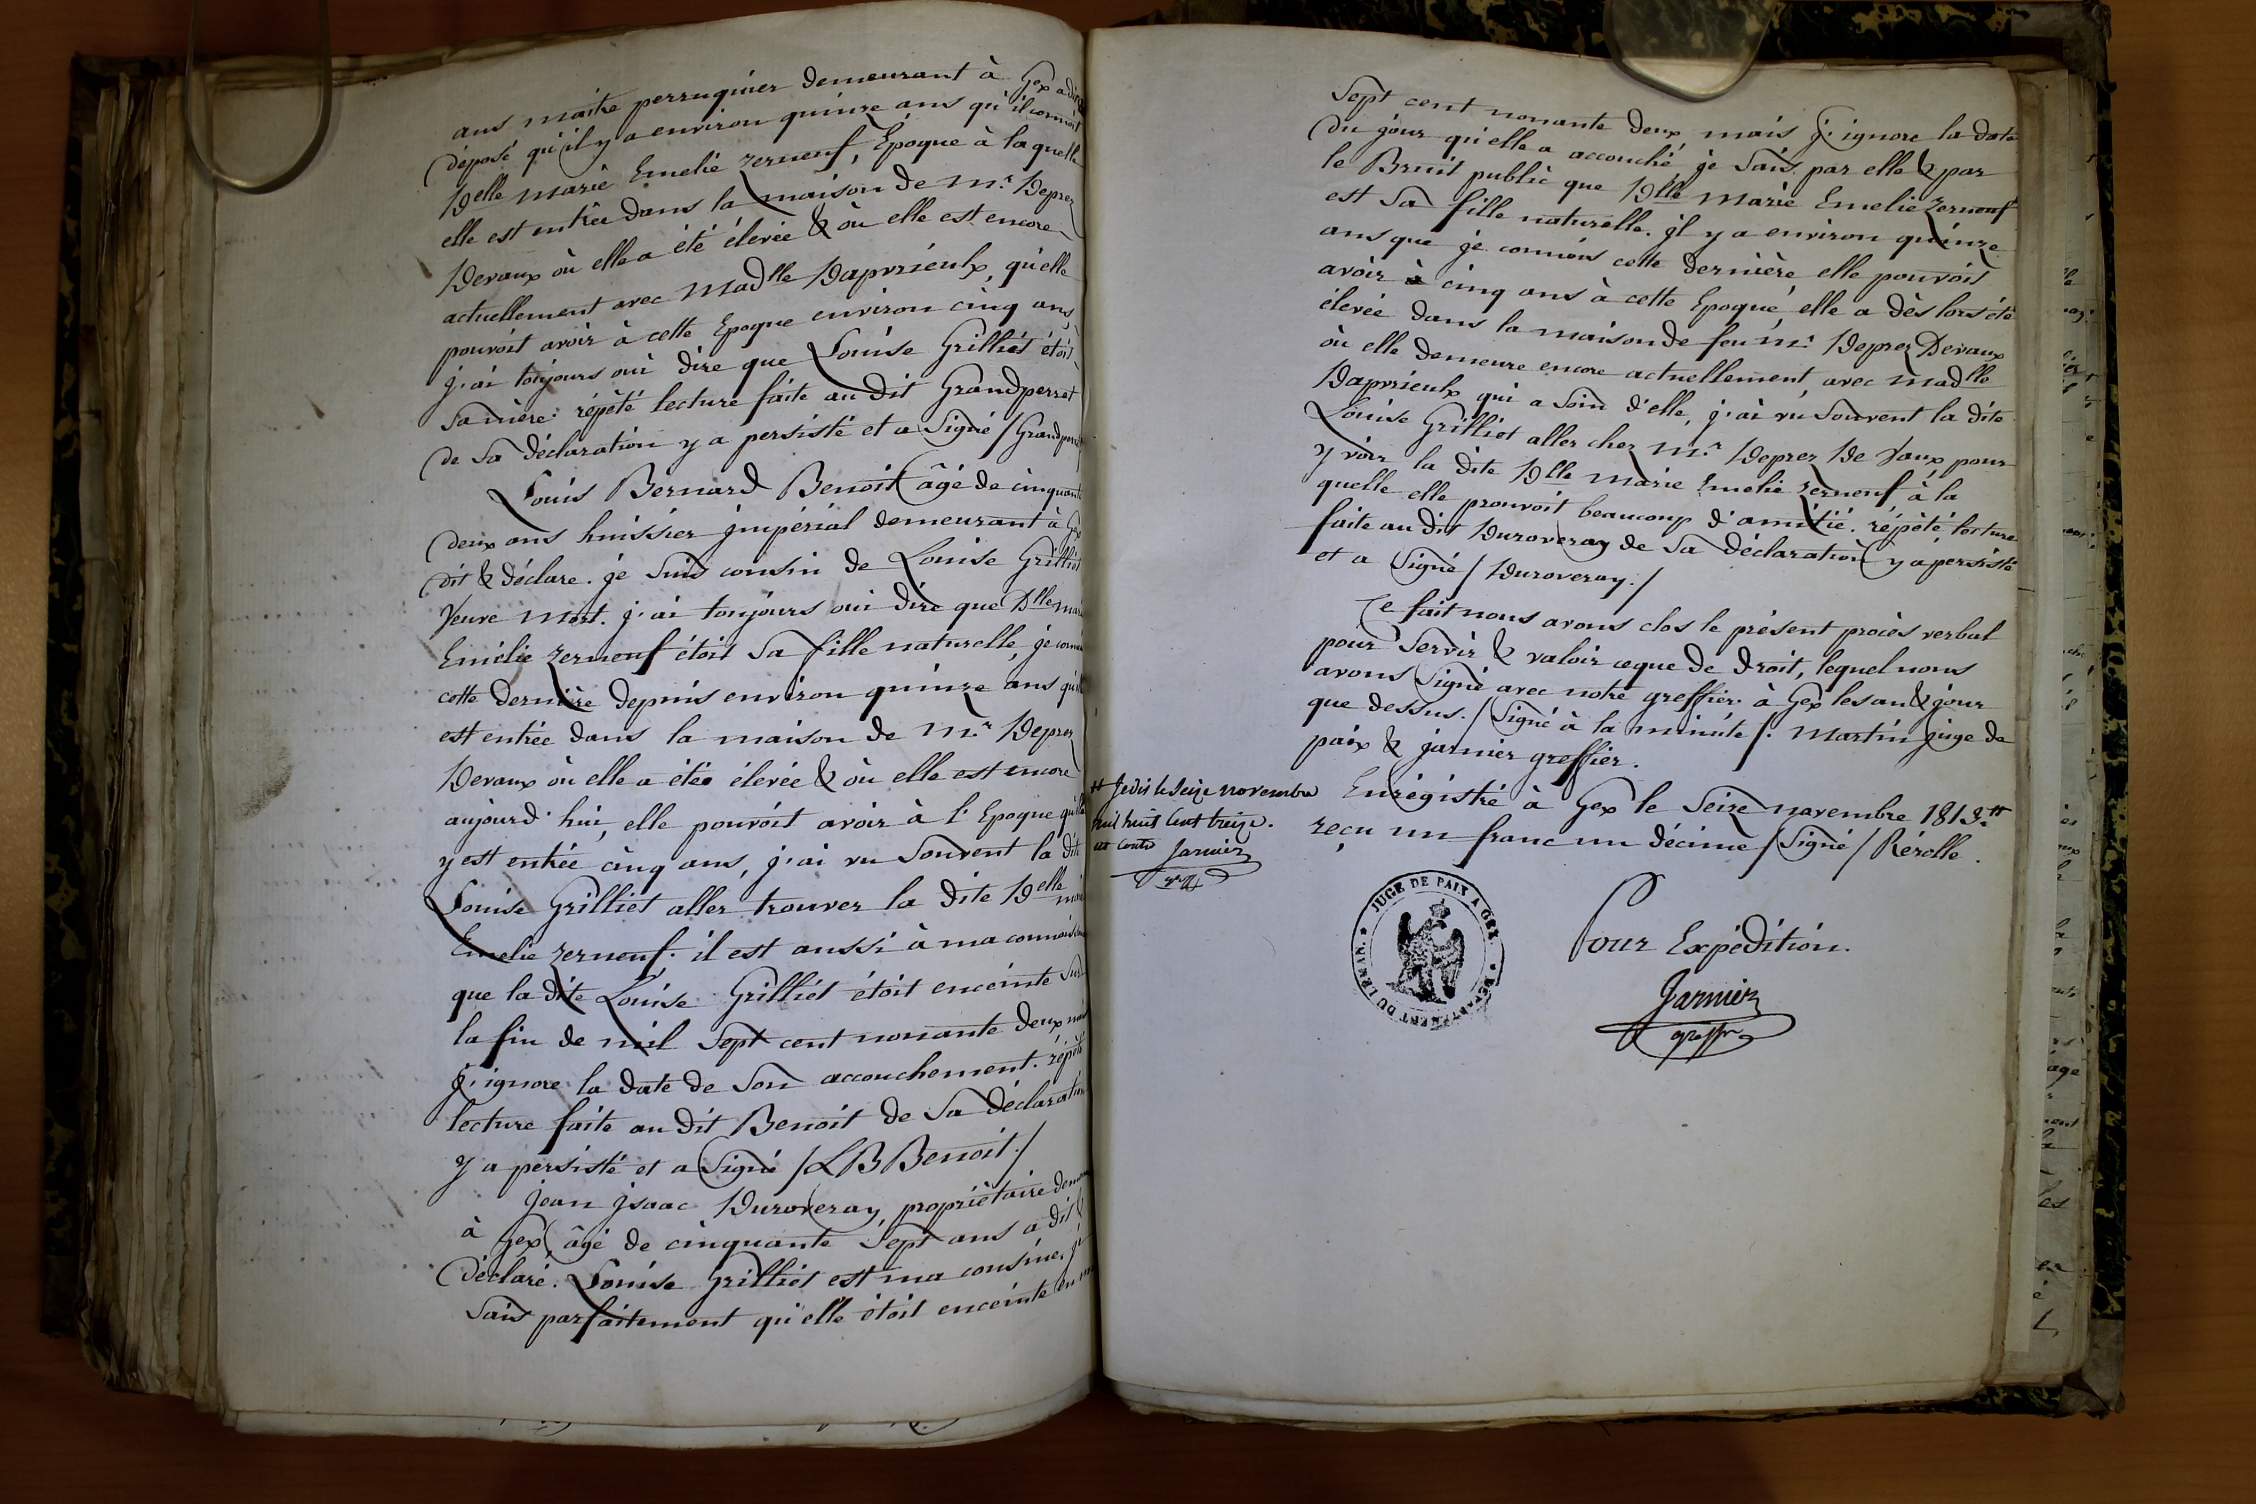 ans maitre perruquier demeurant à Gex a dit &
déposé qu'il y a environ quinze ans qu'il connoit
Delle Marie Emelie Zerneuf, Epoque à la quelle
elle est entrée dans la maison de Mr. Deprez
Devaux où elle a été élevée & où elle est encore
actuellement avec Madlle Daprzieulx, qu'elle
pouvoit avoir à cette Epoque environ cinq ans,
j'ai toujours oui dire que Louise Grilliet étoit
sa mère. répété lecture faite au dit Grandperret
de sa déclaration y a persisté et a signé /
Louis Bernard Benoit âgé de cinquante
deux ans huissier jmpérial demeurant à Gex
dit & déclare. je suis cousin de Louise Grilliet
veuve Mest. j'ai toujours oui dire que Dlle
Emélie Zerneuf étoit sa fille naturelle, je
cette dernière depuis environ quinze ans
est entrée dans la maison de Mr Deprez
Devaux où elle a étée élevée & où elle est encore
aujourd'hui, elle pouvoit avoir à l'Epoque
y est entrée cinq ans, j'ai vu souvent la dite
Louise Grilliet aller trouver la dite Delle
Emelie Zerneuf. il est aussi à ma
que la dite Louise Grilliet étoit enceinte sur
la fin de mil sept cent nonante deux
j'ignore la date de son accouchement. répété
lecture faite au dit Benoit de sa déclaration
y a persisté et a signé / LB Benoit./
Jean jsaac Duroveray, propriétaire
à Gex, âgé de cinquante sept ans a dit &
déclaré. Louise Grilliet est ma cousine. je
sais parfaitement qu'elle étoit enceinte en
sept cent nonante deux mais j'ignore la date
du jour qu'elle a accouché je sais par elle & par
le Bruit public que Dlle Marie Emelie Zerneuf
est sa fille naturelle. jl y a environ quinze
ans que je connois cette dernière, elle pouvoit
avoir à cinq ans à cette Epoque, elle a dès lors été
élevée dans la maison de feu Mr. Deprez Devaux
où elle demeure encore actuellement, avec Madlle
Daprzieulx qui a soin d'elle, j'ai vu souvent la dite
Louise Grilliet aller chez Mr. Deprez De Vaux pour
y voir la dite Dlle Marie Emelie Zerneuf à la
quelle elle prouvoit beaucoup d'amitié. répété lecture
faite au dit Duroveray de sa déclaration y a persisté
et a signé / Duroveray./
Ce fait nous avons clos le présent procès verbal
pour servir & valoir ceque de droit, lequel nous
avons signé avec notre greffier. à Gex les an & jour
que dessus. / Signé à la minute /. Martin Juge de
paix & Jarnier greffier.
Enrégistré à Gex le seize novembre 1813.#
reçu un franc un décime / Signé / Rérolle.
# Je dis le seize novembre
mil huit Cent treize.
Jarnier
JUGE DE PAIX A GEX. DÉPARTEMENT DU LÉMAN.
Pour Expédition.
Jarnier
greffr